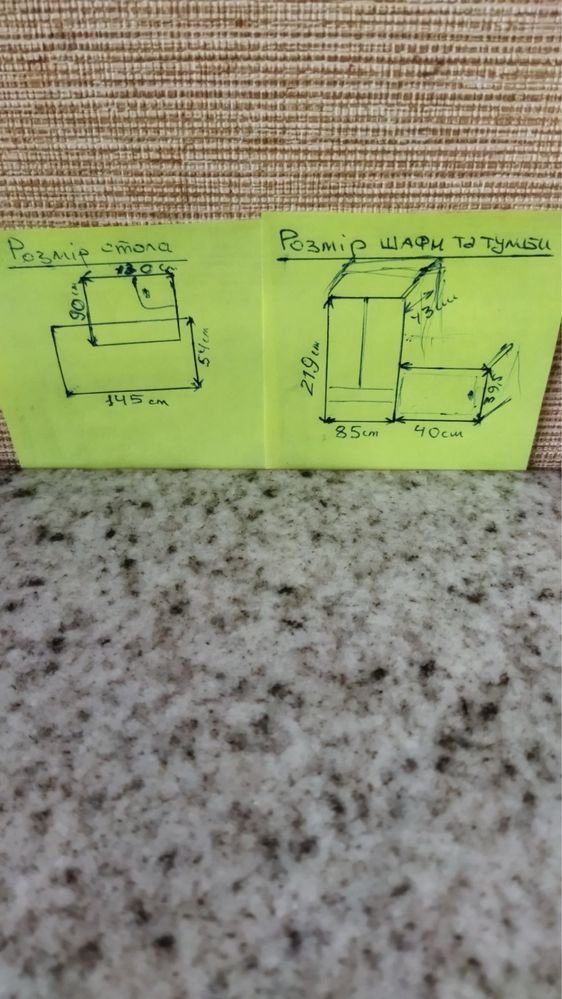 Розмір стола
90 см
54 см
145 см
Розмір шафи та тумби
43 см
219 см
39,5
85 см
40 см